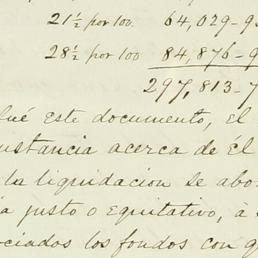 21½ por 100. 64,029-9
28½ por 100 84,876-9
297,813-7
ué este documento, el
ustancia acerca de Él
la liquidacion se abo
ia justo o equitativo, à
ociados los fondos con q